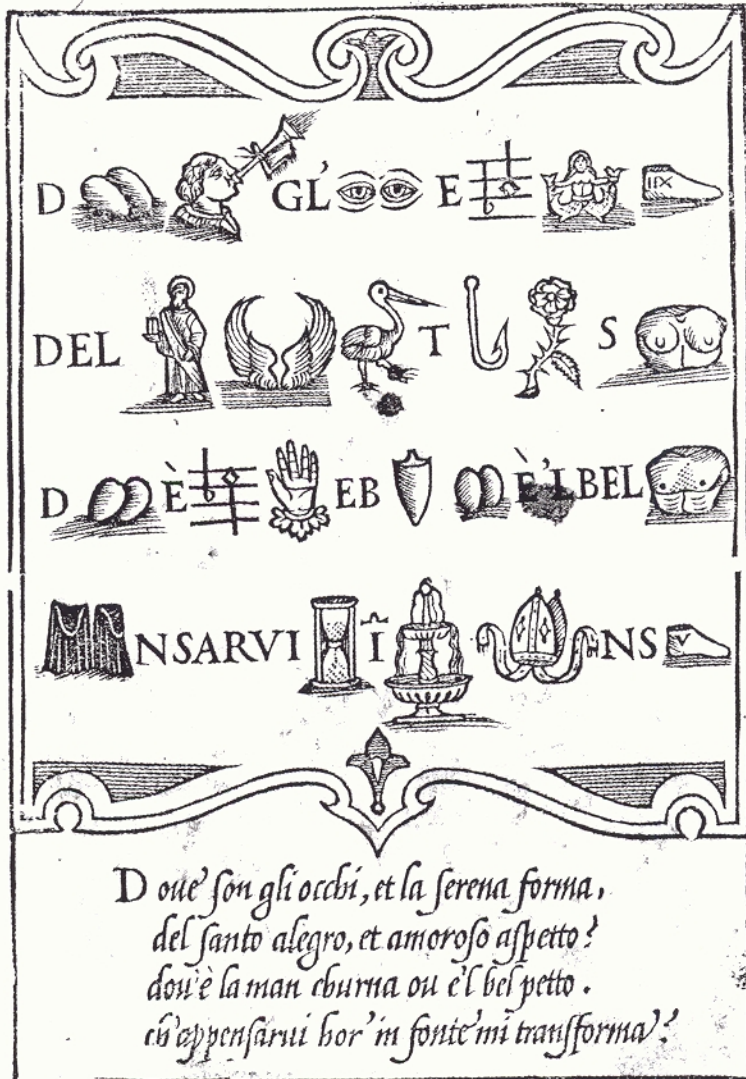 D GL' E IIX
DEL T S
D È EB È 'L BEL
NSARVI Ī NS V
Doue' son gli occhi, et la serena forma,
del santo alegro, et amoroso aspetto?
dou'è la man eburna ou e'l bel petto.
ch'appensarui hor' in fonte mi transforma?